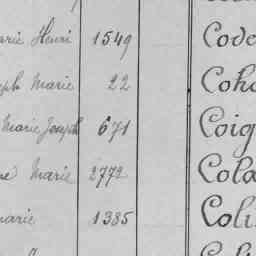 arie Henri 1549 Code
eph Marie 22 Coho
Marie Joseph 671 Coig
ne Marie 2772 Cola
marie 1385 Coli